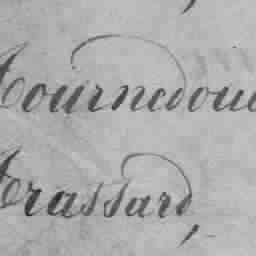 Tournedoue
Frassard,